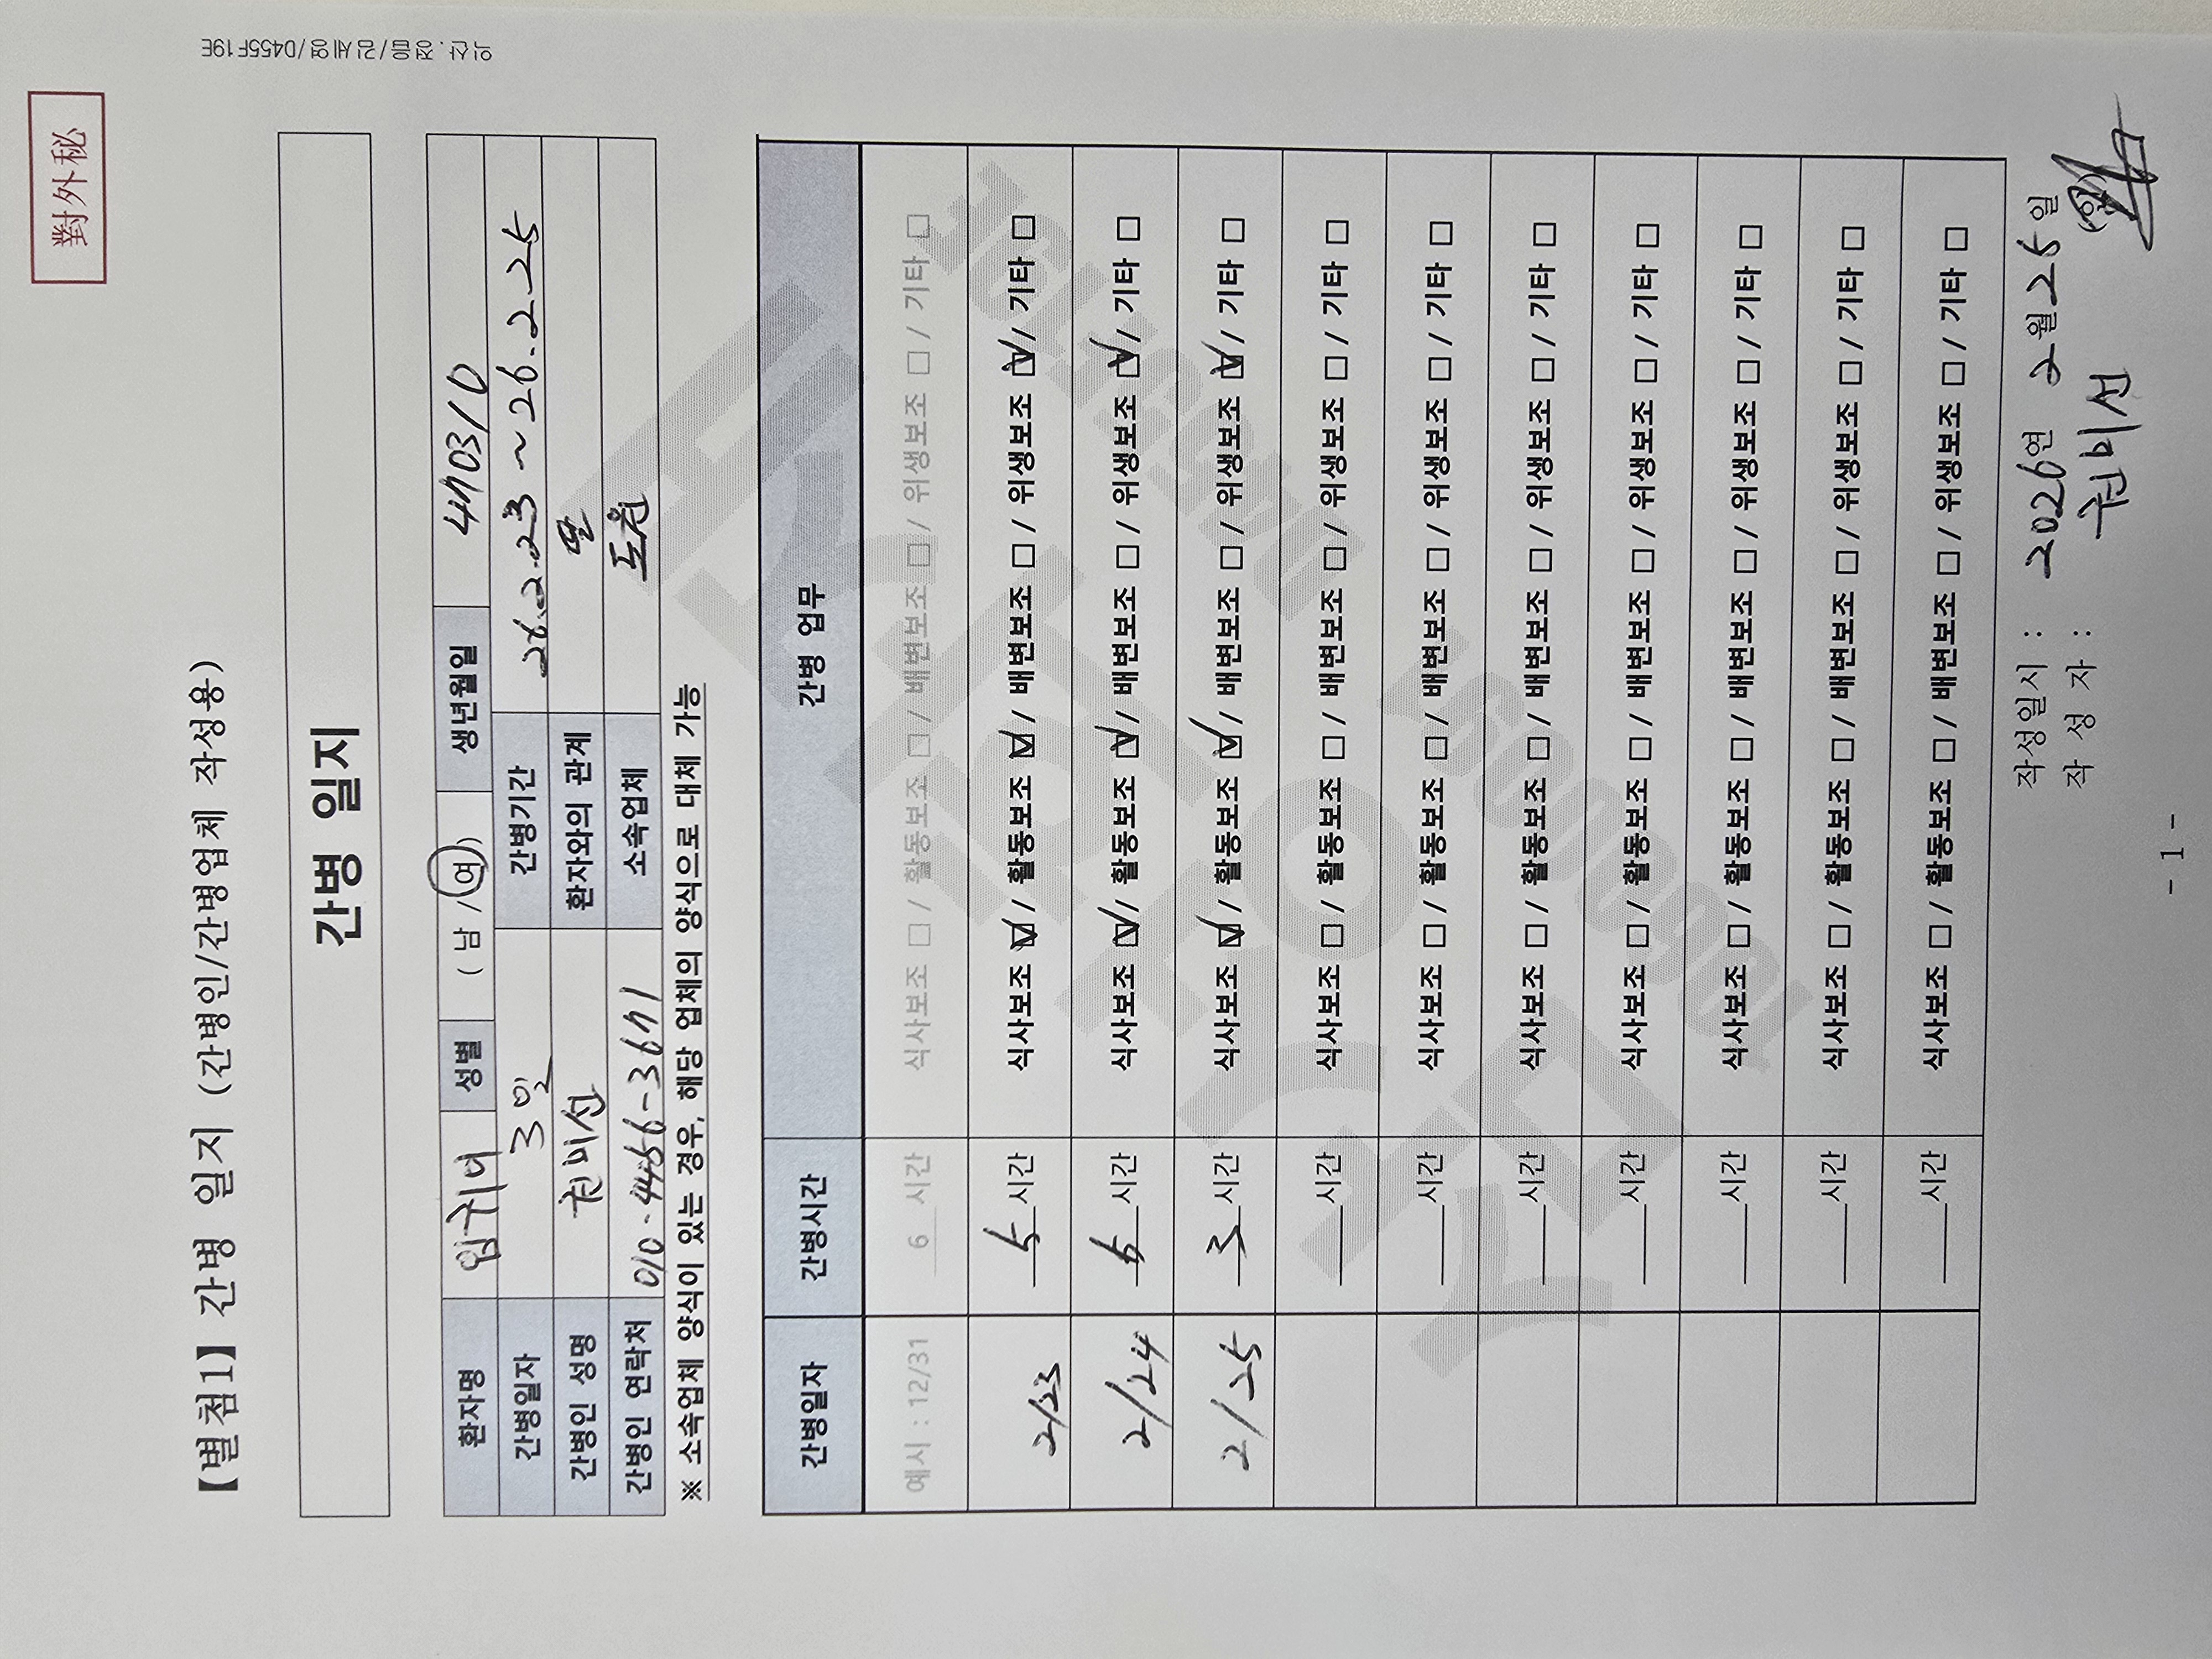 익산.정읍/김세영/D455F19E
對外秘
【별첨1】 간병 일지 (간병인/간병업체 작성용)
간병 일지
환자명 임귀녀 성별 ( 남 / 여 ) 생년월일 470310
간병일자 3일 간병기간 26.2.23 ~ 26.2.25
간병인 성명 권미선 환자와의 관계 딸
간병인 연락처 소속업체 도원
※ 소속업체 양식이 있는 경우, 해당 업체의 양식으로 대체 가능
간병일자 간병시간 간병 업무
예시 : 12/31 6 시간 식사보조 □ / 활동보조 □ / 배변보조 □ / 위생보조 □ / 기타 □
2/23 5 시간 식사보조 ☑ / 활동보조 ☑ / 배변보조 □ / 위생보조 ☑ / 기타 □
2/24 시간 식사보조 ☑ / 활동보조 ☑ / 배변보조 □ / 위생보조 ☑ / 기타 □
2/25 3 시간 식사보조 ☑ / 활동보조 ☑ / 배변보조 □ / 위생보조 ☑ / 기타 □
시간 식사보조 □ / 활동보조 □ / 배변보조 □ / 위생보조 □ / 기타 □
시간 식사보조 □ / 활동보조 □ / 배변보조 □ / 위생보조 □ / 기타 □
시간 식사보조 □ / 활동보조 □ / 배변보조 □ / 위생보조 □ / 기타 □
시간 식사보조 □ / 활동보조 □ / 배변보조 □ / 위생보조 □ / 기타 □
시간 식사보조 □ / 활동보조 □ / 배변보조 □ / 위생보조 □ / 기타 □
시간 식사보조 □ / 활동보조 □ / 배변보조 □ / 위생보조 □ / 기타 □
시간 식사보조 □ / 활동보조 □ / 배변보조 □ / 위생보조 □ / 기타 □
작성일시 : 2026연 2월 25일
작 성 자 : 권미선 (인)
- 1 -